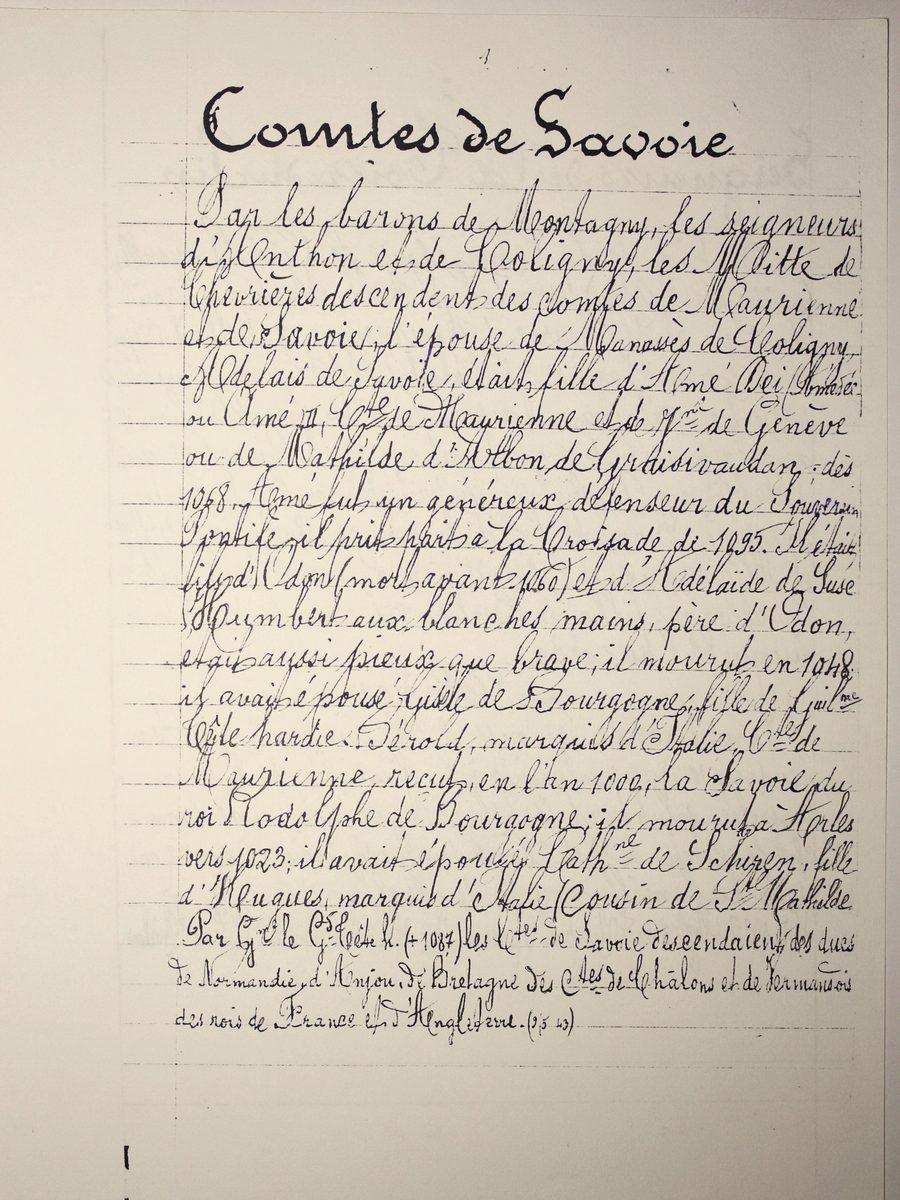 1
Comtes de Savoie
Par les barons de Montagny, les seigneurs
d'Anthon et de Coligny, les Mitte de
Chevrières descendent des comtes de Maurienne
et de Savoie; l'épouse de Manassès de Coligny,
Adelais de Savoie, était fille d'Amé
ou Amé II, Cte de Maurienne et de Jne de Genève
ou de Mathilde d'Albon de Graisivaudan; dès
1068. Amé fut un généreux défenseur du Souverain
Pontife, il prit part à la Croisade de 1095. Il était
fils d'Odon (mort avant 1060) et d'Adélaïde de Suse
Humbert aux blanches mains, père d'Odon,
était aussi pieux que brave; il mourut en 1048
il avait épousé Gisèle de Bourgogne, fille de Guilme
Tête hardie. Bérold, marquis d'Italie, Cte de
Maurienne, reçut, en l'an 1000, la Savoie du
roi Rodolphe de Bourgogne; il mourut à Arles
vers 1023; il avait épousé Cathne de Schiren, fille
d'Hugues, marquis d'Italie (Cousin de Ste Mathilde
Par Gme le Gd Tête h. (+ 1087) les Ctes de Savoie descendaient des ducs
de Normandie, d'Anjou, de Bretagne des Ctes de Châlons et de Vermandois
des rois de France et d'Angleterre.